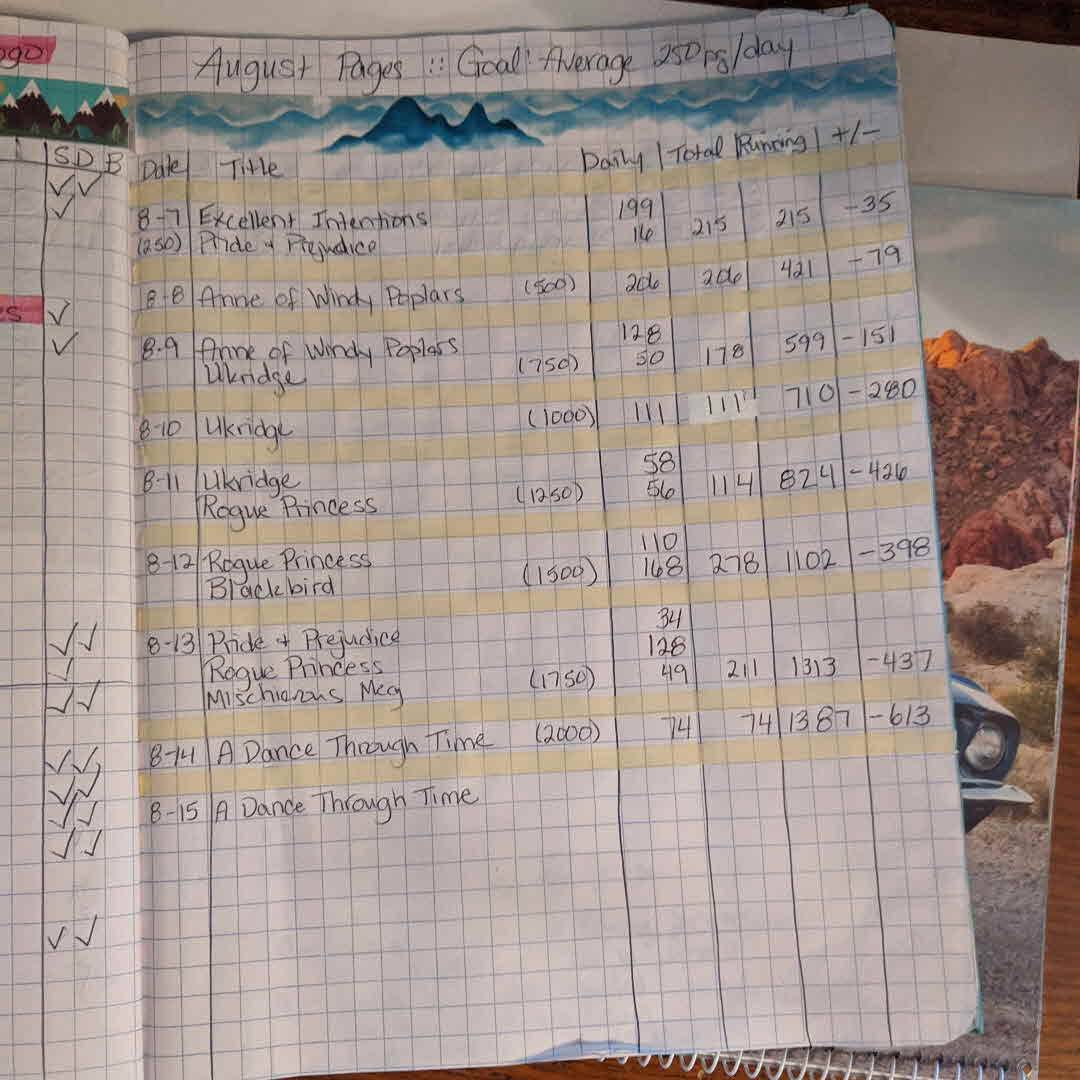 ogo
S D B
es
August Pages :: Goal: Average 250 pg/day
Date Title Daily Total Running +/-
8-7 Excellent Intentions 199
(250) Pride & Prejudice 16 215 215 -35
8-8 Anne of Windy Poplars (500) 206 206 421 -79
8-9 Anne of Windy Poplars 128
Ukridge (750) 50 178 599 -151
8-10 Ukridge (1000) 111 111 710 -280
8-11 Ukridge 58
Rogue Princess (1250) 56 114 824 -426
8-12 Rogue Princess 110
Blackbird (1500) 168 278 1102 -398
8-13 Pride & Prejudice 34
Rogue Princess 128
Mischievous Meg (1750) 49 211 1313 -437
8-14 A Dance Through Time (2000) 74 74 1387 -613
8-15 A Dance Through Time